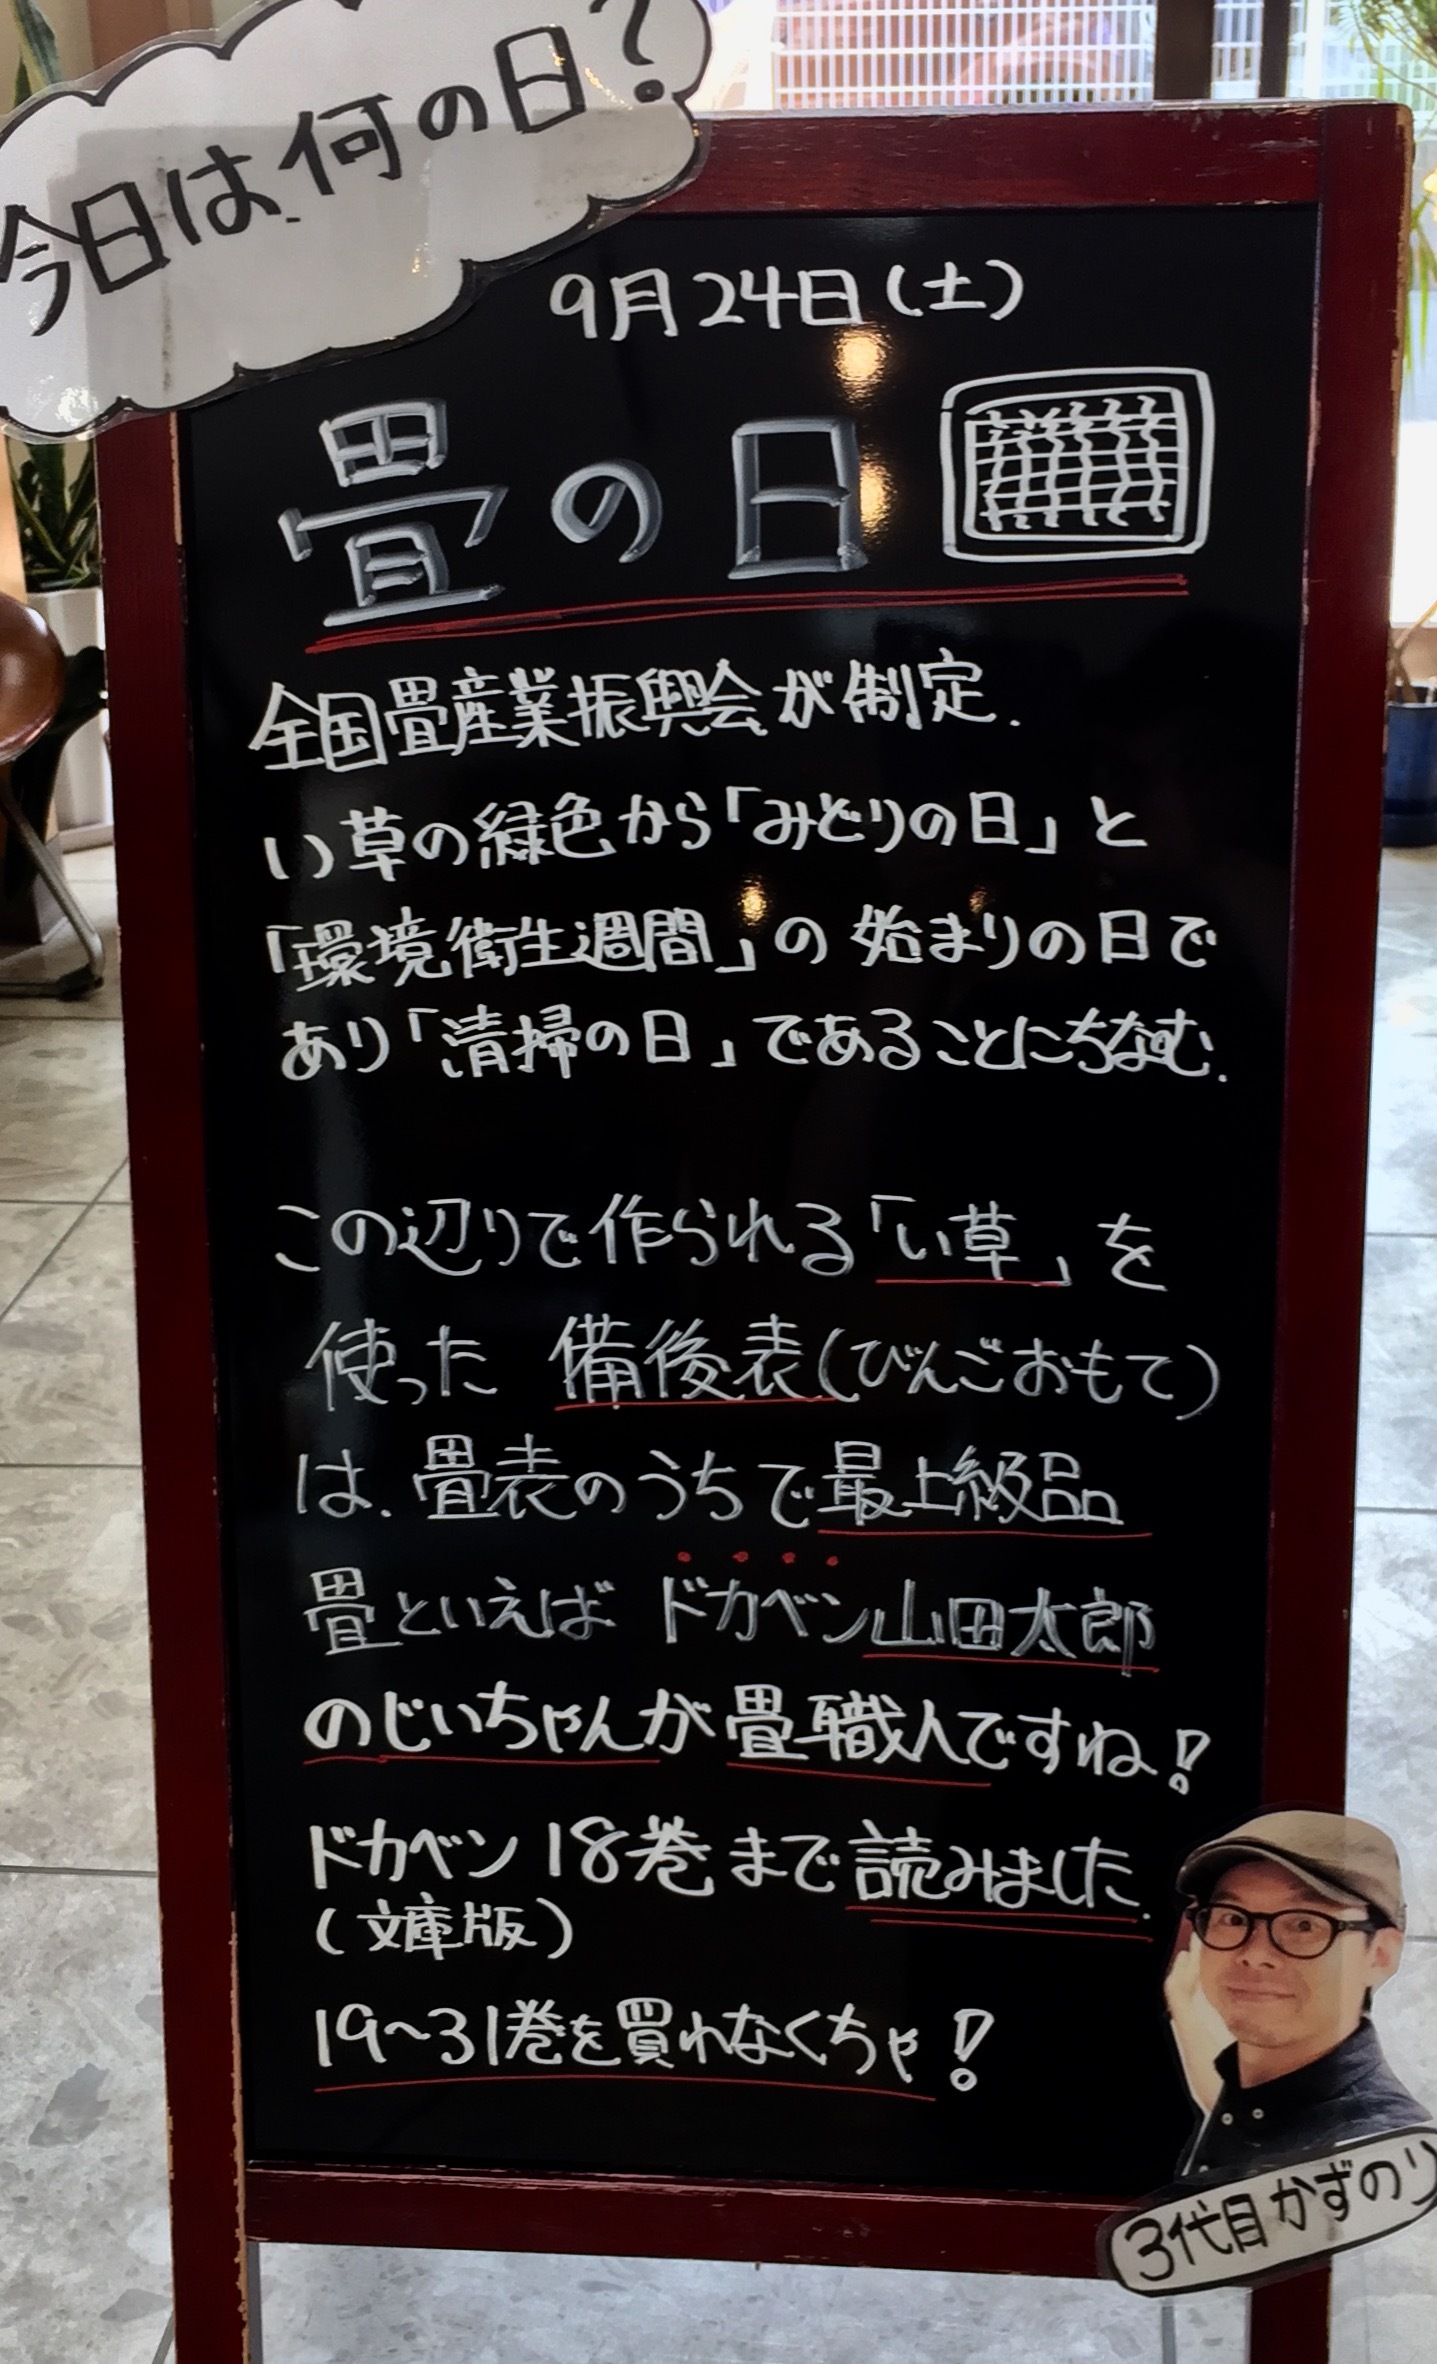 今日は、何の日?
9月24日(土)
畳の日
全国畳産業振興会が制定.
い草の緑色から「みどりの日」と
「環境衛生週間」の始まりの日で
あり「清掃の日」であることにちなむ.
この辺りで作られる「い草」を
使った 備後表(びんごおもて)
は、畳表のうちで最上級品
畳といえば ドカベン山田太郎
のじいちゃんが畳職人ですね!
ドカベン18巻まで読みました.
(文庫版)
19~31巻を買わなくちゃ!
3代目かずのり